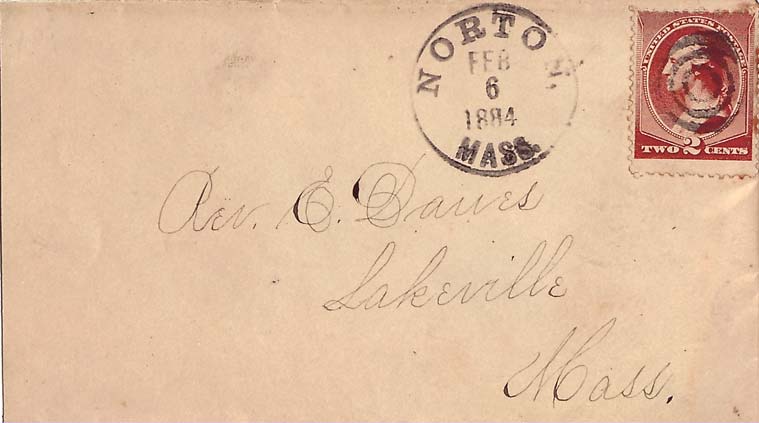 NORTON.
FEB
6
1884
MASS.
UNITED STATES POSTAGE
TWO 2 CENTS
Rev. E. Dawes
Lakeville
Mass.